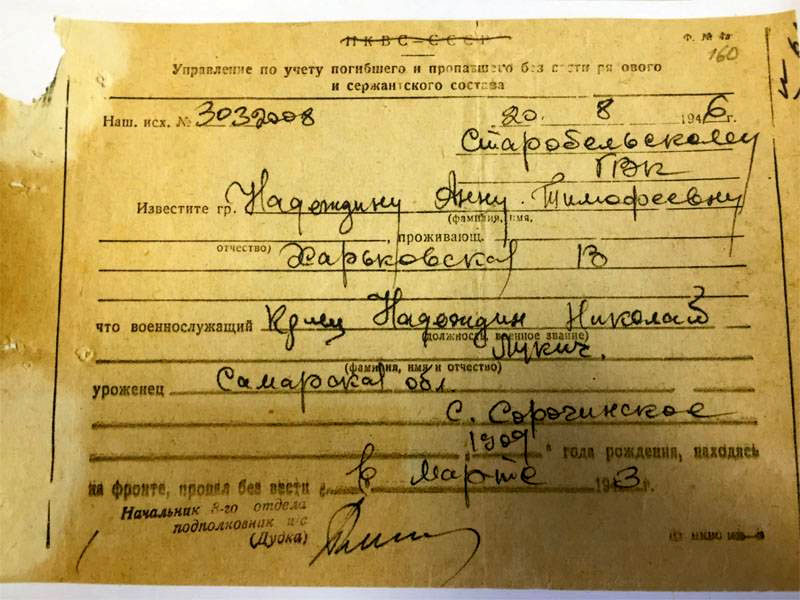 НКВС-СССР
Ф. № 4а
160
Управление по учету погибшего и пропавшего без вести рядового
и сержантского состава
Наш. исх. № 3032008 20. 8 1946г.
Старобельскому
ГВК
Известите гр. Надеждину Анну Тимофеевну
(фамилия, имя,
, проживающ.
отчество)
Харьковская 13
что военнослужащий Кр-ец Надеждин Николай
(должность, военное звание)
Лукич.
(фамилия, имя и отчество)
уроженец Самарская обл.
с. Сорочинское
1909 года рождения, находясь
на фронте, пропал без вести в марте 1943г.
Начальник 8-го отдела
подполковник и/с
(Дудка)